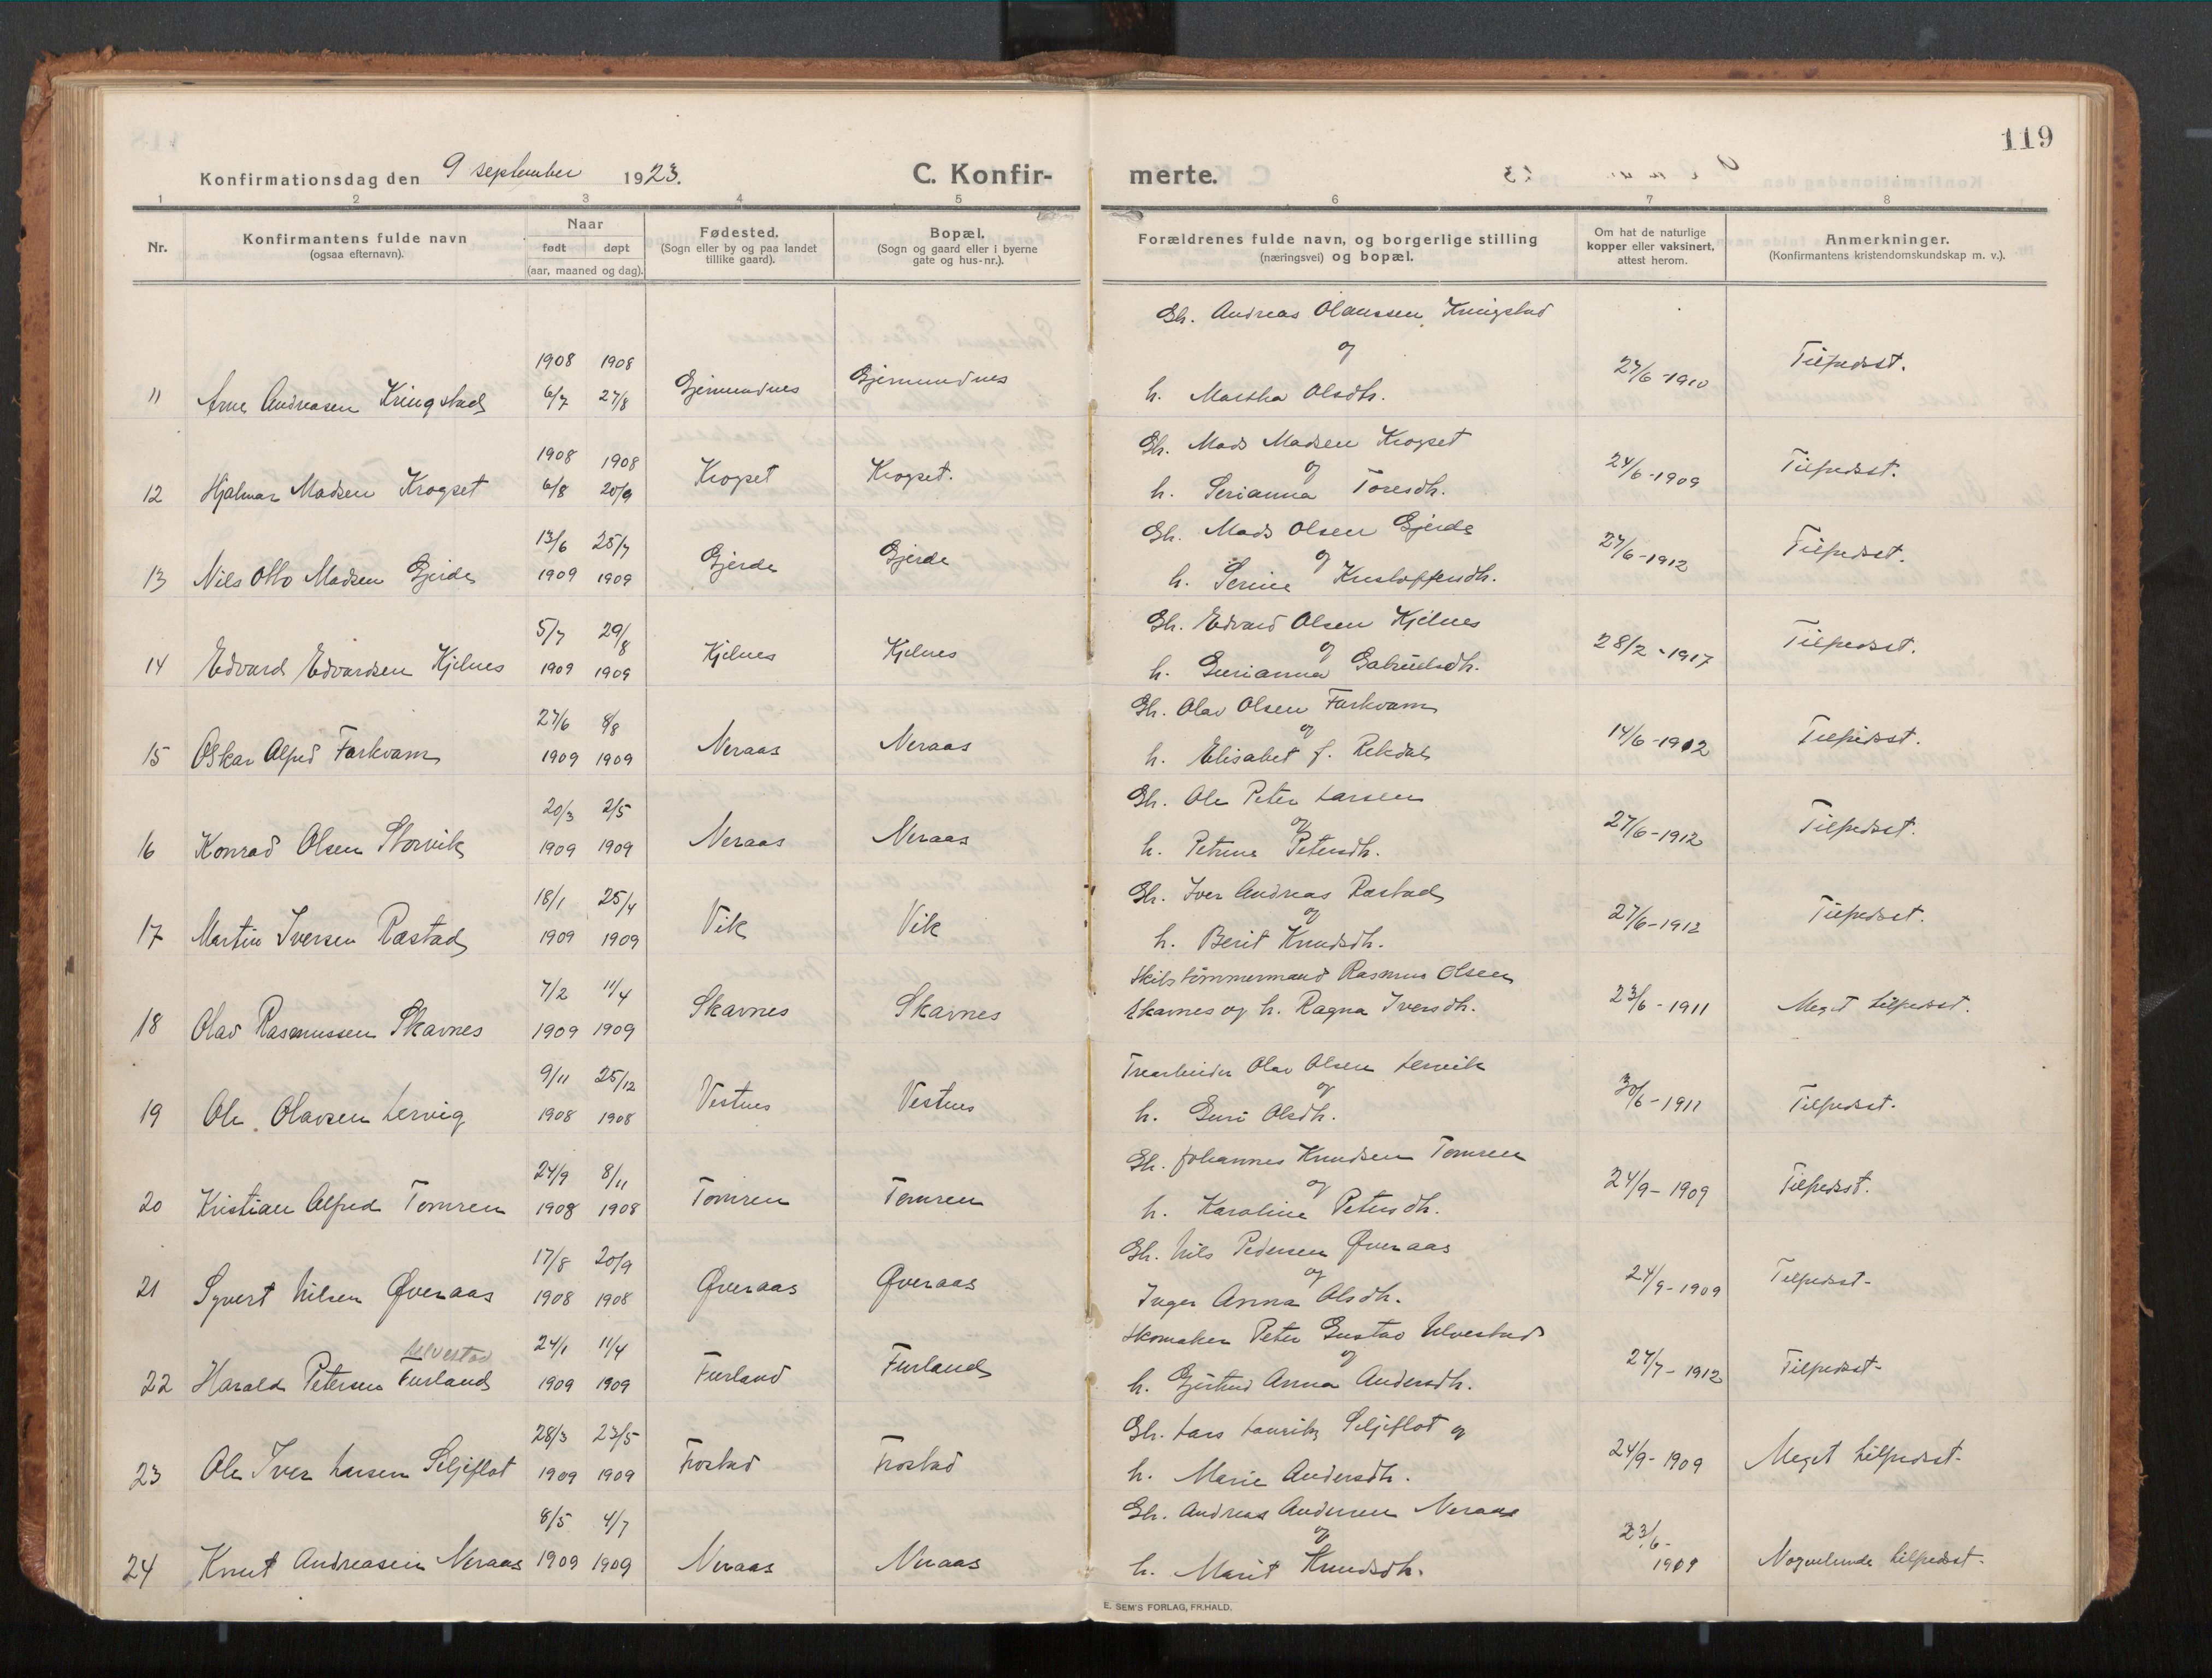 119
Konfirmationsdag den 9 september 1923.
C. Konfir- merte.
1 2 3 4 5 6 7 8
Nr.
Konfirmantens fulde navn
(ogsaa efternavn).
Naar
født døpt
(aar, maaned og dag).
Fødested.
(Sogn eller by og paa landet
tillike gaard).
Bopæl.
(Sogn og gaard eller i byerne
gate og hus-nr.).
Forældrenes fulde navn, og borgerlige stilling
(næringsvei) og bopæl.
Om hat de naturlige
kopper eller vaksinert,
attest herom.
Anmerkninger.
(Konfirmantens kristendomskundskap m. v.).
Gb. Andreas Olaussen Kringstad
1908 1908 og
11 Arne Andreasen Kringstad 6/7 27/8 Gjermundnes Gjermundnes h. Martha Olsdtr. 27/6-1910 Tilfredsst.
1908 1908 Gb. Mads Madsen Krogset
og
12 Hjalmar Madsen Krogset 6/8 20/9 Krogset Krogset. h. Serianna Toresdtr. 24/6-1909 Tilfredsst.
13/6 25/7 Gb. Mads Olsen Gjerde
og
13 Nils Otto Madsen Gjerde 1909 1909 Gjerde Gjerde h. Serine Kristoffersdtr. 27/6-1912 Tilfredsst.
5/7 29/8 Gb. Edvard Olsen Kjelnes
og
14 Edvard Edvardsen Kjelnes 1909 1909 Kjelnes Kjelnes h. Gurianna Gabrielsdtr. 28/2-1917 Tilfredsst.
27/6 8/8 Gb. Olav Olsen Farkvam
og
15 Oskar Alfred Farkvam 1909 1909 Neraas Neraas h. Elisabet f. Rekdal 14/6-1912 Tilfredsst.
20/3 2/5 Gb. Ole Peter Larsen
og
16 Konrad Olsen Storvik 1909 1909 Neraas Neraas h. Petrine Petersdtr. 27/6-1912 Tilfredsst.
18/1 25/4 Gb. Iver Andreas Rastad
og
17 Martin Iversen Rastad 1909 1909 Vik Vik h. Berit Knudsdtr. 27/6-1912 Tilfredsst.
7/2 11/4 Skibstømmermand Rasmus Olsen
18 Olav Rasmussen Skavnes 1909 1909 Skavnes Skavnes Skavnes og h. Ragna Iversdtr. 23/6-1911 Meget tilfredsst.
9/11 25/12 Træarbeider Olav Olsen Lervik
og
19 Ole Olavsen Lervig 1908 1908 Vestnes Vestnes h. Guri Olsdtr. 30/6-1911 Tilfredsst.
24/9 8/11 Gb. Johannes Knudsen Tomren
og
20 Kristian Alfred Tomren 1908 1908 Tomren Tomren h. Karoline Petersdtr. 24/9-1909 Tilfredsst.
17/8 20/9 Gb. Nils Pedersen Øveraas
og
21 Syvert Nilsen Øveraas 1908 1908 Øveraas Øveraas Inger Anna Olsdtr. 24/9-1909 Tilfredsst.
Ulvestad 24/1 11/4 Skomaker Peter Gustav Ulvestad
og
22 Harald Petersen Furland 1909 1909 Furland Furland h. Gjertrud Anna Andersdtr. 27/7-1912 Tilfredsst.
28/3 23/5 Gb. Lars Laurits Seljeflot og
23 Ole Iver Larsen Seljeflot 1909 1909 Frostad Frostad h. Marie Andersdtr. 24/9-1909 Meget tilfredsst.
8/5 4/7 Gb. Andreas Andersen Neraas
og
24 Knut Andreasen Neraas 1909 1909 Neraas Neraas h. Marit Knudsdtr. 23/6-1909 Nogenlunde tilfredsst.
E. SEM'S FORLAG, FR.HALD.